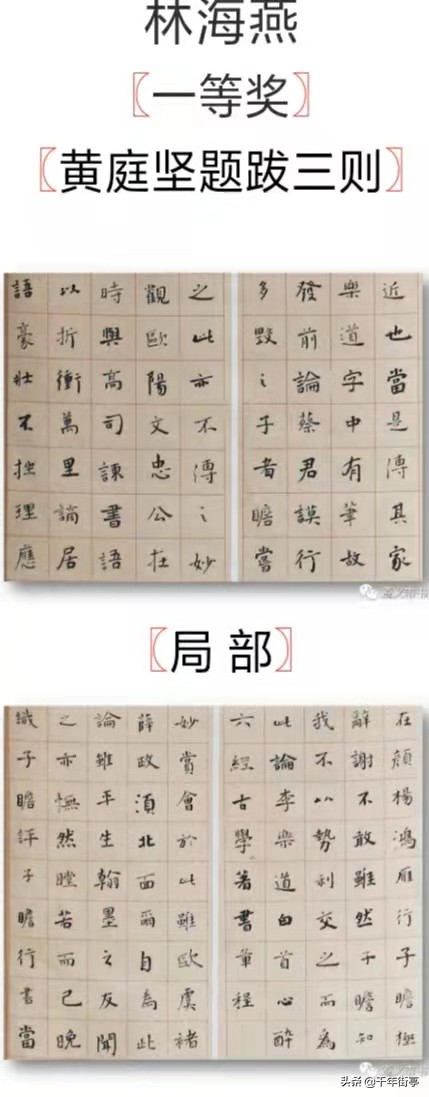 林海燕
〖一等奖〗
〖黄庭坚题跋三则〗
近也當是傳其家
樂道字中有筆故
發前論蔡君謨行
多毀之子者瞻嘗
之此亦不傳之妙
觀歐陽文忠公在
時與高司諫書語
以折衝萬里謫居
語豪壯不挫理應
〖局 部〗
在顏楊鴻雁行子瞻極
辭謝不敢雖然子瞻知
我不以勢利交之而為
此論李樂道白首心醉
六經古學著書筆程
妙賞會於此雖歐虞褚
薛政須北面爾自為此
論雖平生翰墨之友聞
之亦憮然瞠若而已晚
識子瞻評子瞻行書當
头条 @千年街亭